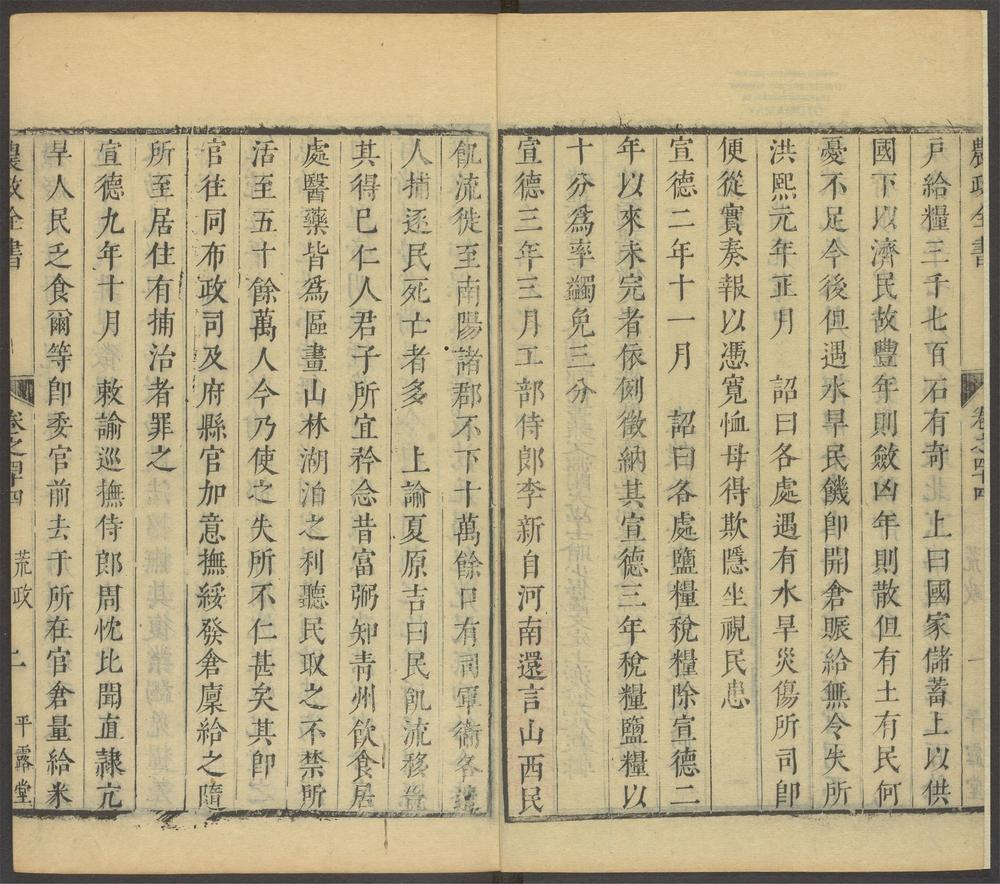 農政全書 卷之四十四 荒政 一 平露堂
戸給糧三千七百石有奇 上曰國家儲蓄上以供
國下以濟民故豐年則斂凶年則散但有土有民何
憂不足今後但遇水旱民饑卽開倉賑給無令失所
洪熙元年正月 詔曰各處遇有水旱災傷所司卽
便從實奏報以憑寬恤毋得欺隱坐視民患
宣德二年十一月 詔曰各處鹽糧稅糧除宣德二
年以來未完者依例徵納其宣德三年稅糧鹽糧以
十分爲率蠲免三分
宣德三年三月工部侍郎李新自河南還言山西民
飢流徙至南陽諸郡不下十萬餘口有司軍衞各遣
人捕逐民死亡者多 上諭夏原吉曰民飢流移豈
其得已仁人君子所宜矜念昔富弼知青州飲食居
處醫藥皆爲區畫山林湖泊之利聽民取之不禁所
活至五十餘萬人今乃使之失所不仁甚矣其卽
官往同布政司及府縣官加意撫綏發倉廩給之隨
所至居住有捕治者罪之
宣德九年十月 敕諭巡撫侍郎周忱比聞直隸亢
旱人民乏食爾等卽委官前去于所在官倉量給米
農政全書 卷之四十四 荒政 二 平露堂